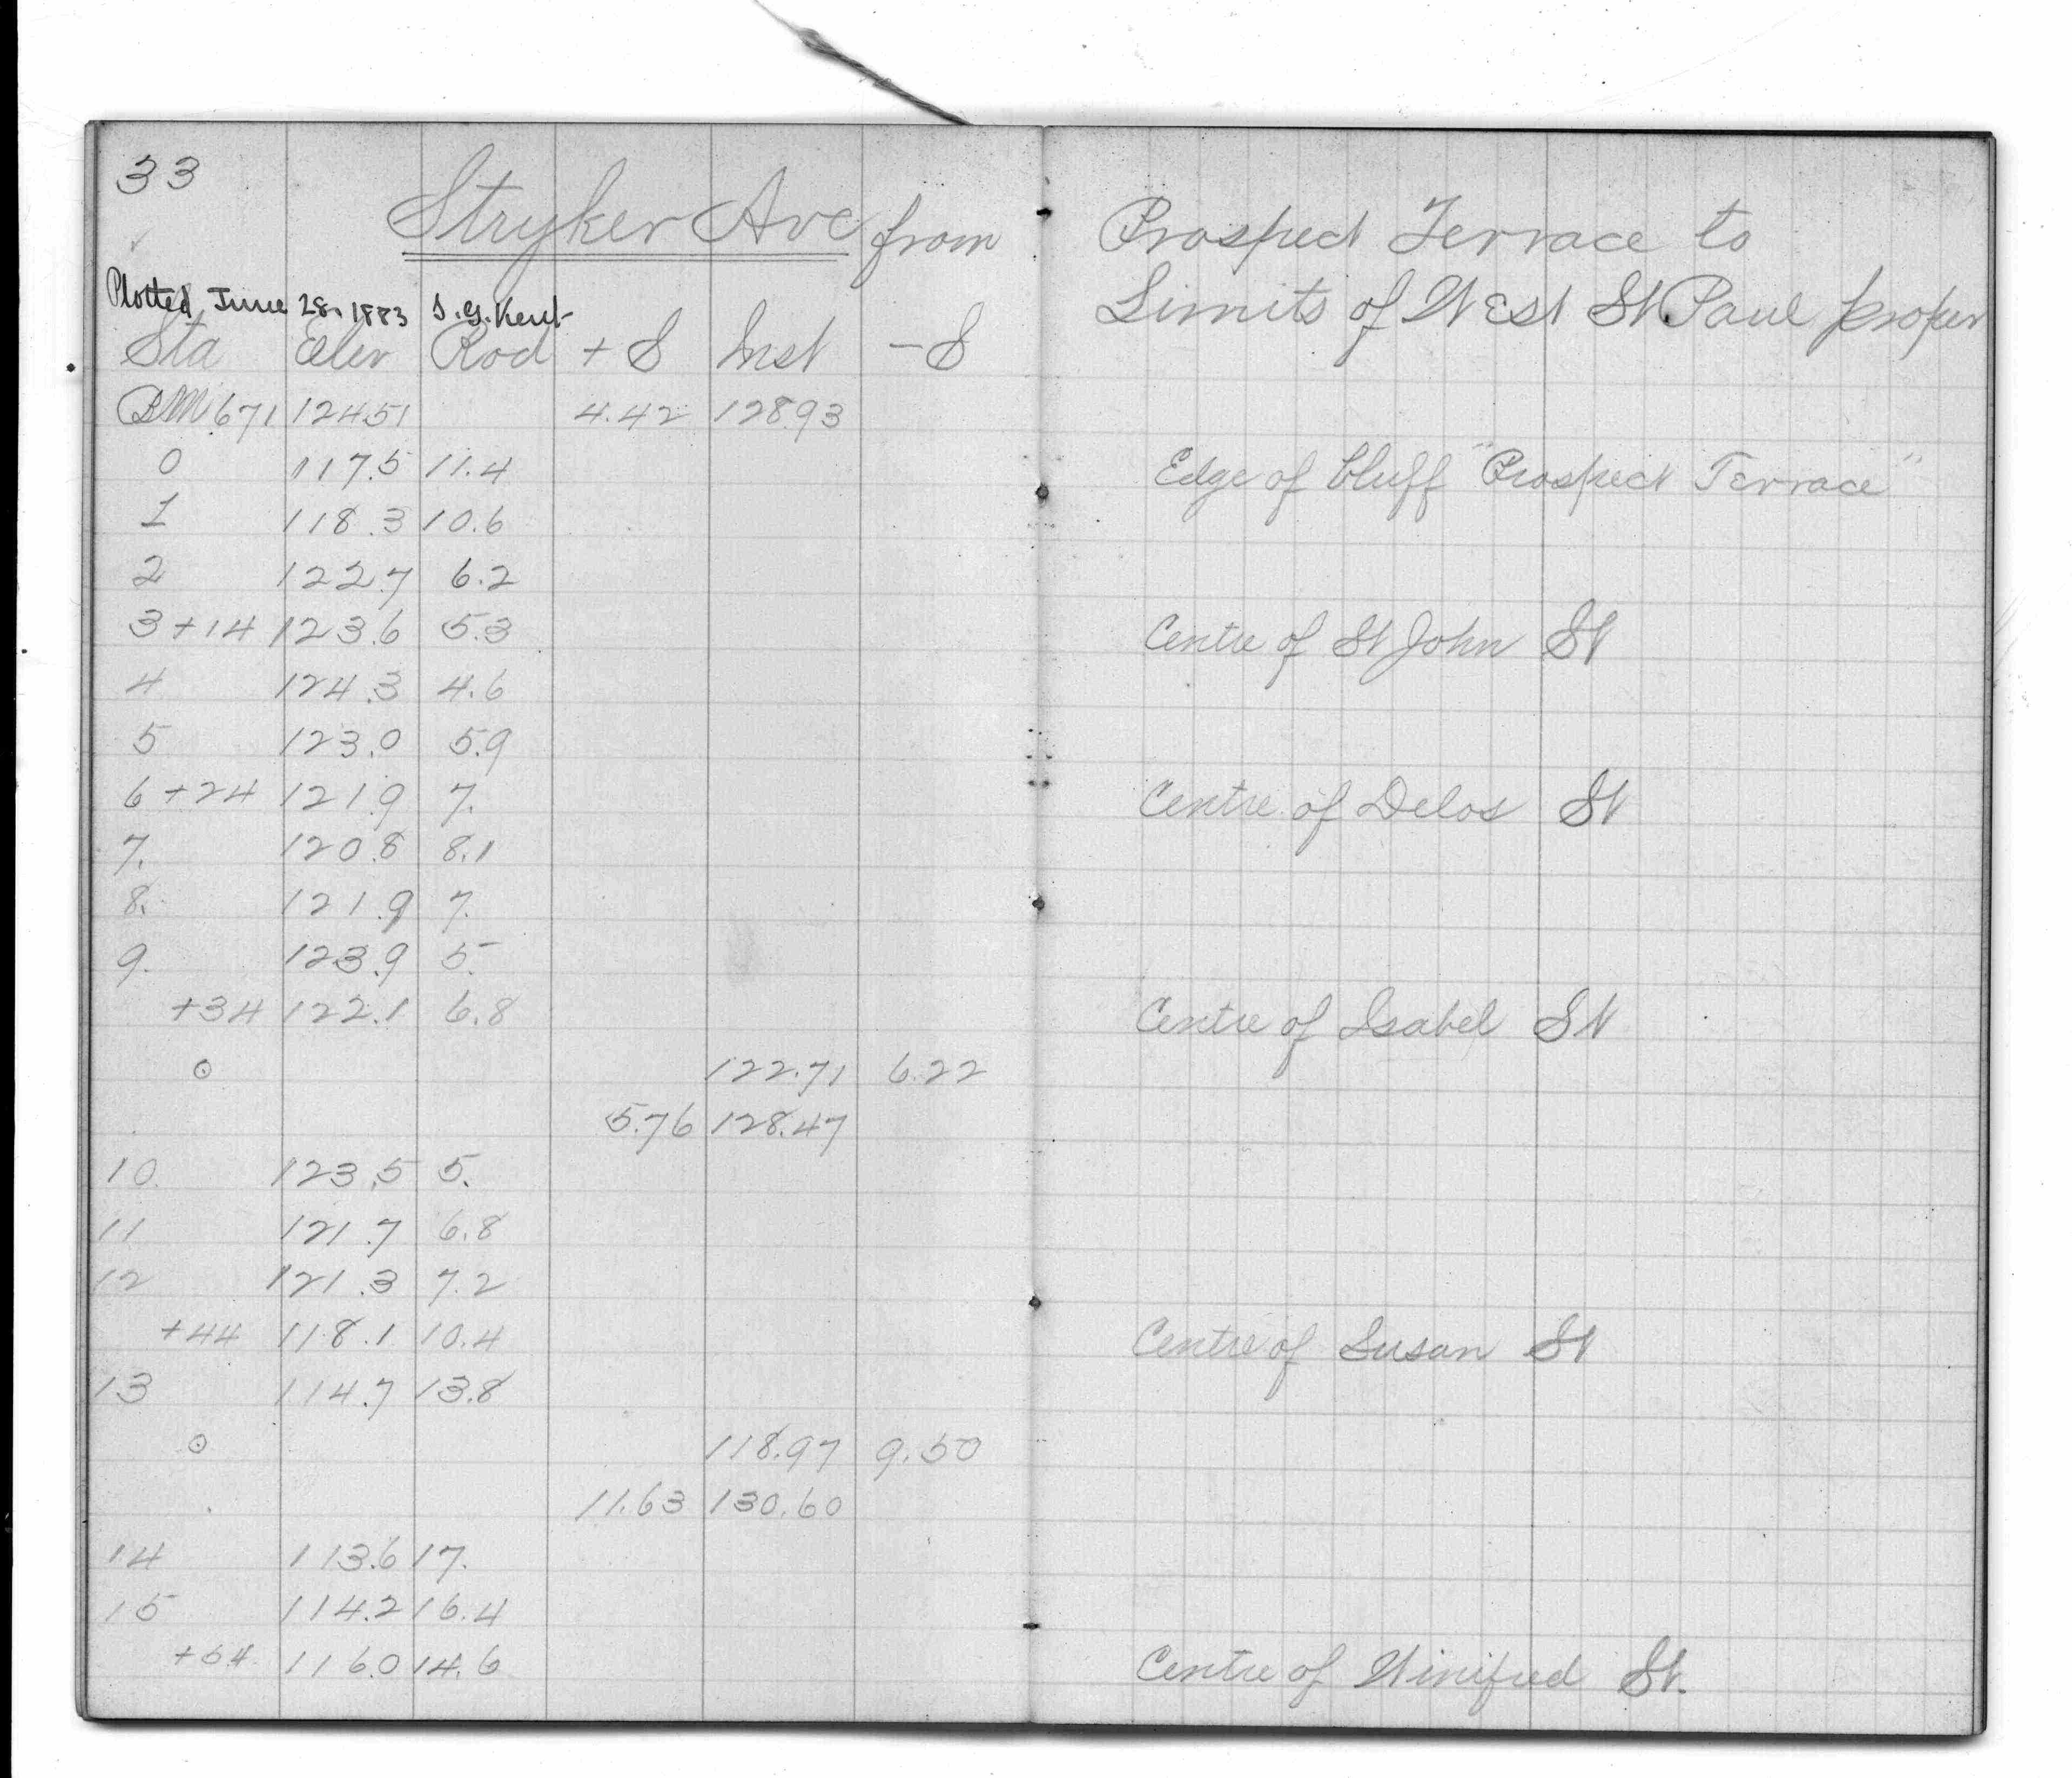 33
Stryker Ave from
Prospect Terrace to
Limits of West St. Paul proper
Plotted June 28. 1883 S.G. Kent
Sta Elev Rod + S Inst - S
BM 671 124.51 4.42 128.93
0 117.5 11.4 Edge of bluff "Prospect Terrace"
1 118.3 10.6
2 122.7 6.2
3+14 123.6 5.3 Centre of St John St
4 124.3 4.6
5 123.0 5.9
6+24 121.9 7. Centre of Delos St
7. 120.8 8.1
8. 121.9 7.
9. 123.9 5.
+34 122.1 6.8 Centre of Isabel St
⊙ 122.71 6.22
5.76 128.47
10. 123.5 5.
11 121.7 6.8
12 121.3 7.2
+44 118.1 10.4 Centre of Susan St
13 114.7 13.8
⊙ 118.97 9.50
11.63 130.60
14 113.6 17.
15 114.2 16.4
+54. 116.0 14.6 Centre of Winifred St.